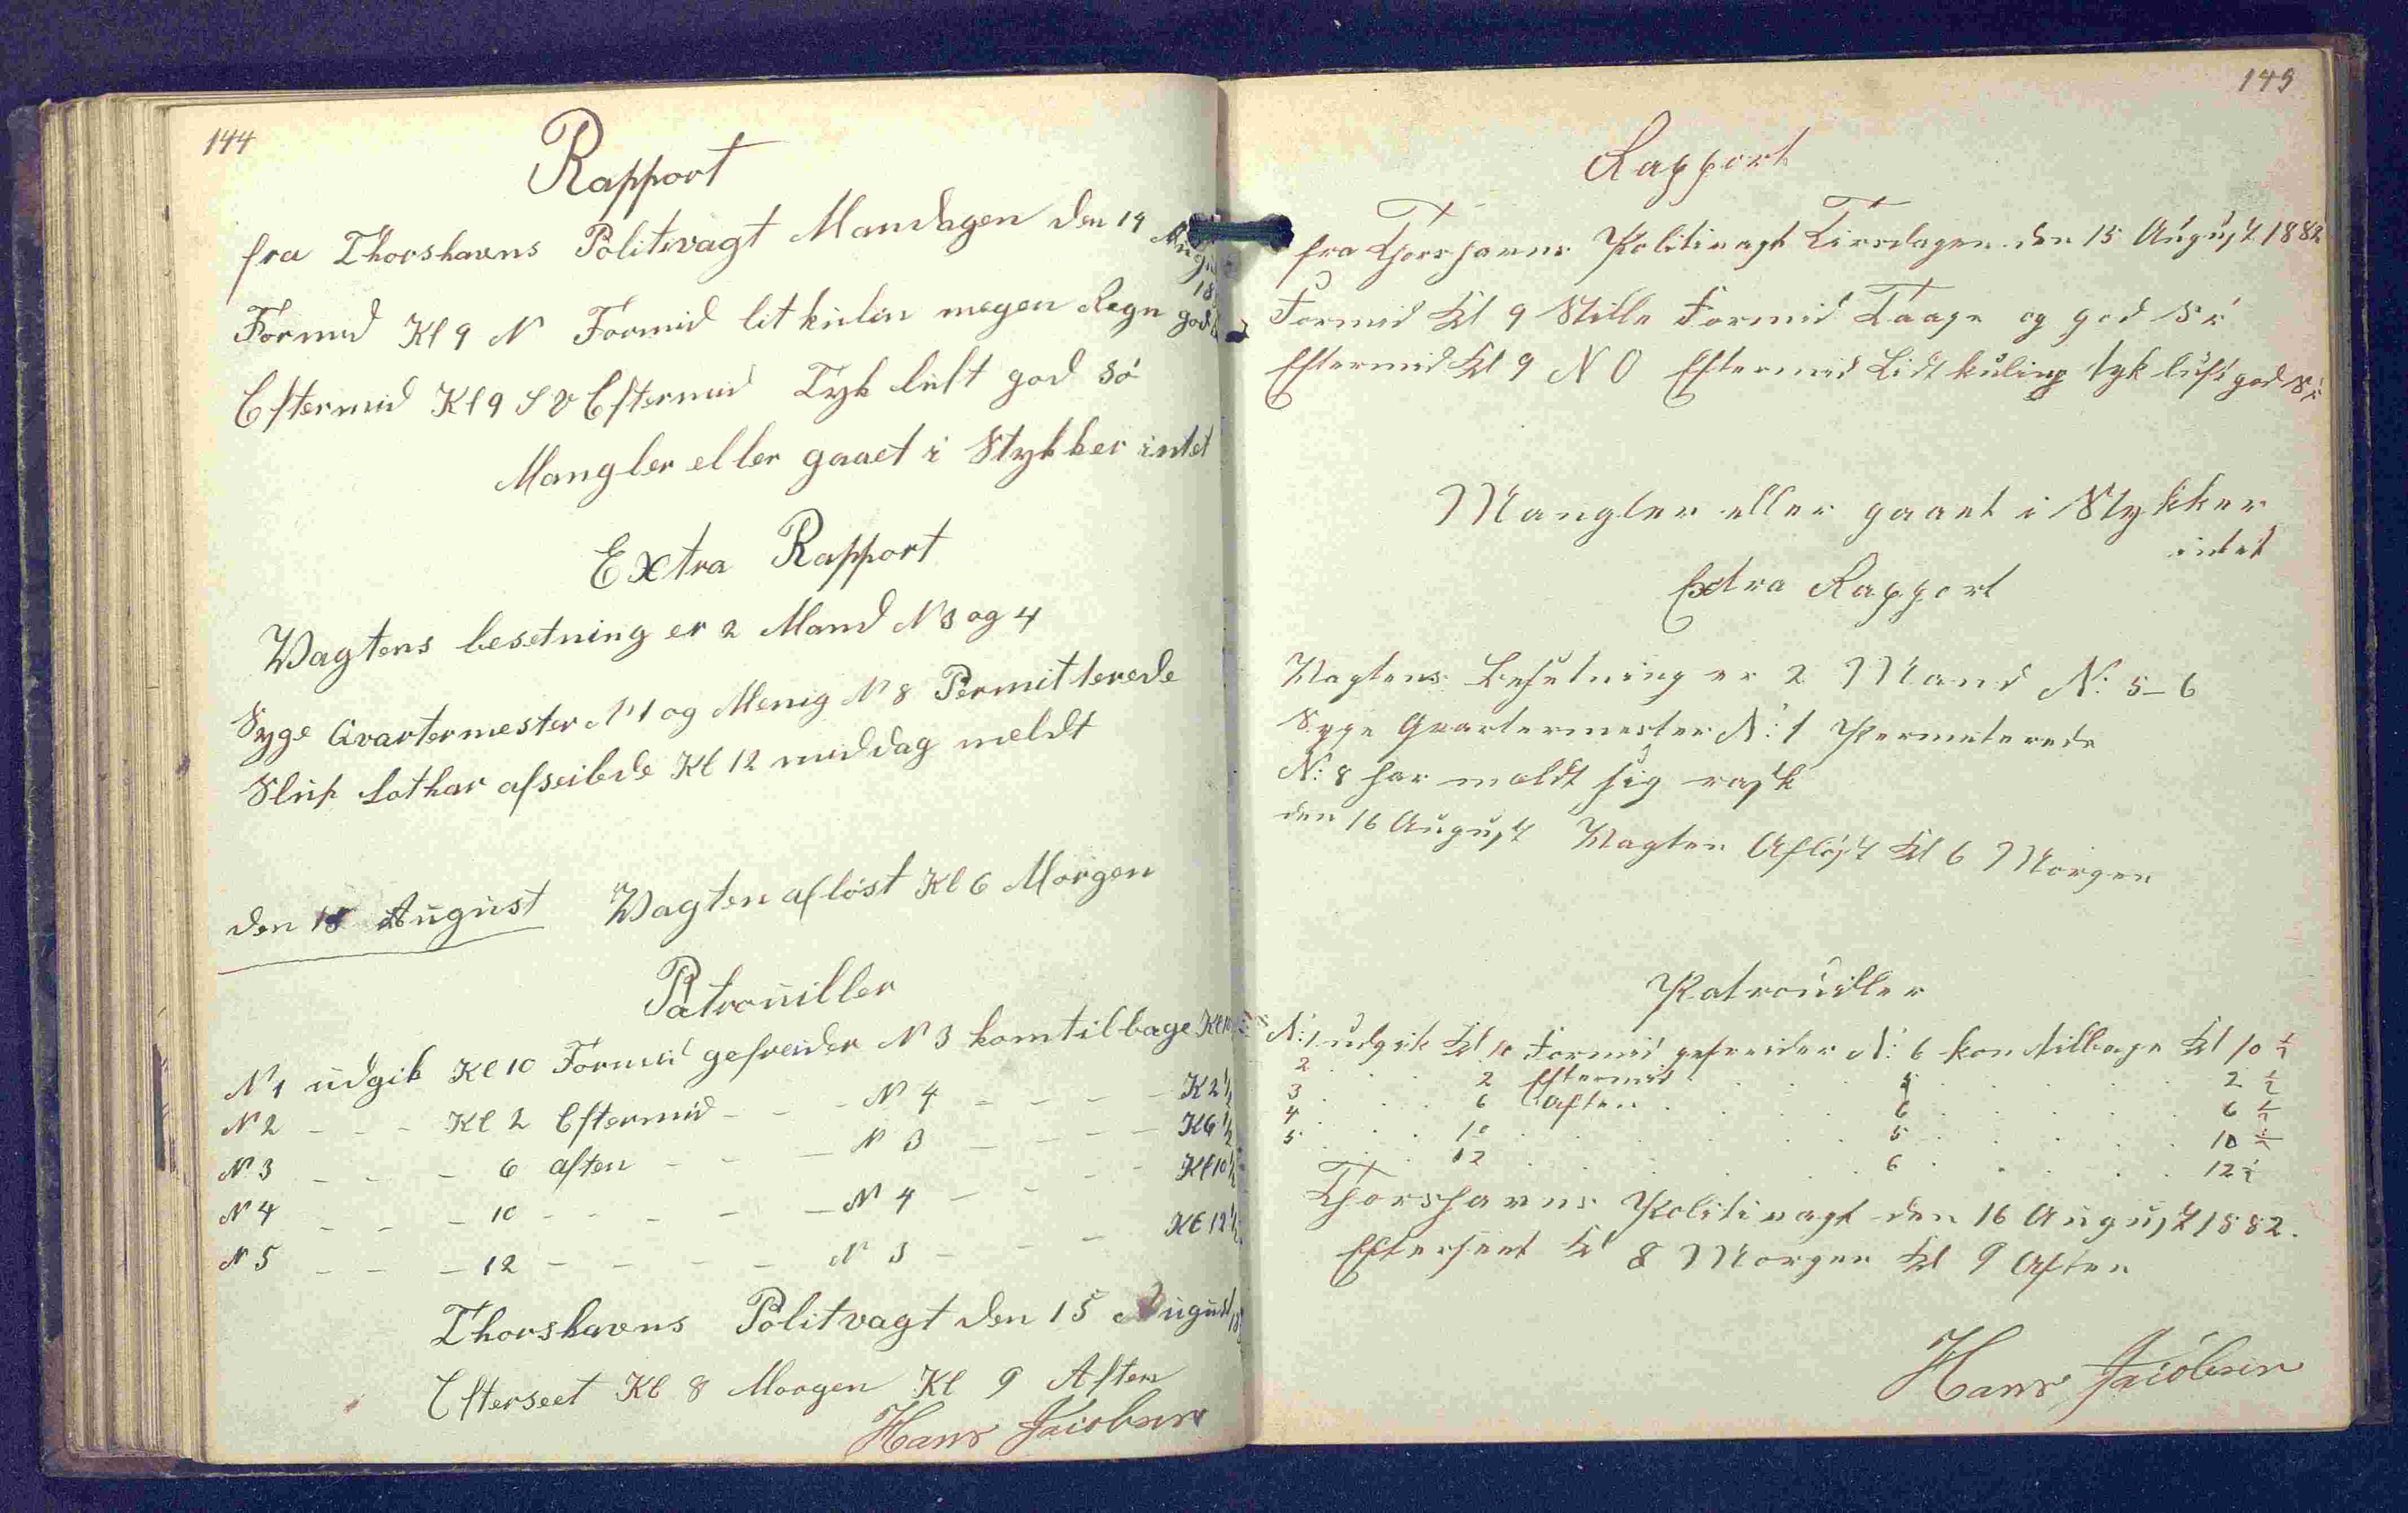 144
Rapport
fra Thorshavns Politivagt Mandagen den 14 Augu
18
Formid Kl 9 N Formid lit kulin megen Regn god
Eftermid Kl 9 SV Eftermid Tyk luft god Sö
Mangler eller gaaet i Stykker intet
Extra Rapport
Vagtens besetning er 2 Mand N 3 og 4
Syge Qvartermester N 1 og Menig N 8 Permitterede
Slup Lothar afseilede Kl 12 middag meldt
den 15 August Vagten afløst Kl 6 Morgen
Patrouiller
N 1 udgik Kl 10 Formid gefreider N 3 kom tilbage Kl 10
N 2 - - - Kl 2 Eftermid - - - N 4 - - - - K 2 1/2
N 3 - - - 6 aften - - - N 3 - - - - Kl 6 1/2
N 4 - - - 10 - - - - - N 4 - - - Kl 10 1/2
N 5 - - - 12 - - - - - N 3 - - - Kl 12 1/2
Thorshavns Politvagt den 15 August 18
Efterseet Kl 8 Morgen Kl 9 Aften
Hans Jacobsen
145
Rapport
fra Thorshavns Politivagt Tirsdagen den 15 August 1882
Formid Kl 9 Stille Formid Taage og god Sö
Eftermid Kl 9 N O Eftermid Lidt kuling tyk luft god Sö
Mangler eller gaaet i Stykker
intet
Extra Rapport
Vagtens Besetning er 2 Mand N: 5-6
Syge Qvartermester N: 1 Permeterede
N: 8 har meldt sig rask
den 16 August Vagten Afløst Kl 6 Morgen
Patrouiller
N: 1 udgik Kl 10 Formid gefreider N: 6 kom tilbage Kl 10 1/2
2 . . . 2 Eftermid . . . 5 . . . . 2 1/2
3 . . . 6 Aften . . . 6 . . . . 6 1/2
4 . . . 10 . . . . 5 . . . . 10 1/2
5 . . . 12 . . . . 6 . . . . 12 1/2
Thorshavns Politivagt den 16 August 1882.
Efterseet Kl 8 Morgen Kl 9 Aften
Hans Jacobsen